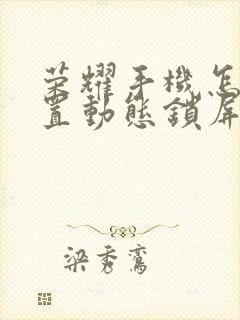 榮耀手機怎
置動態鎖屏
梁秀鸞